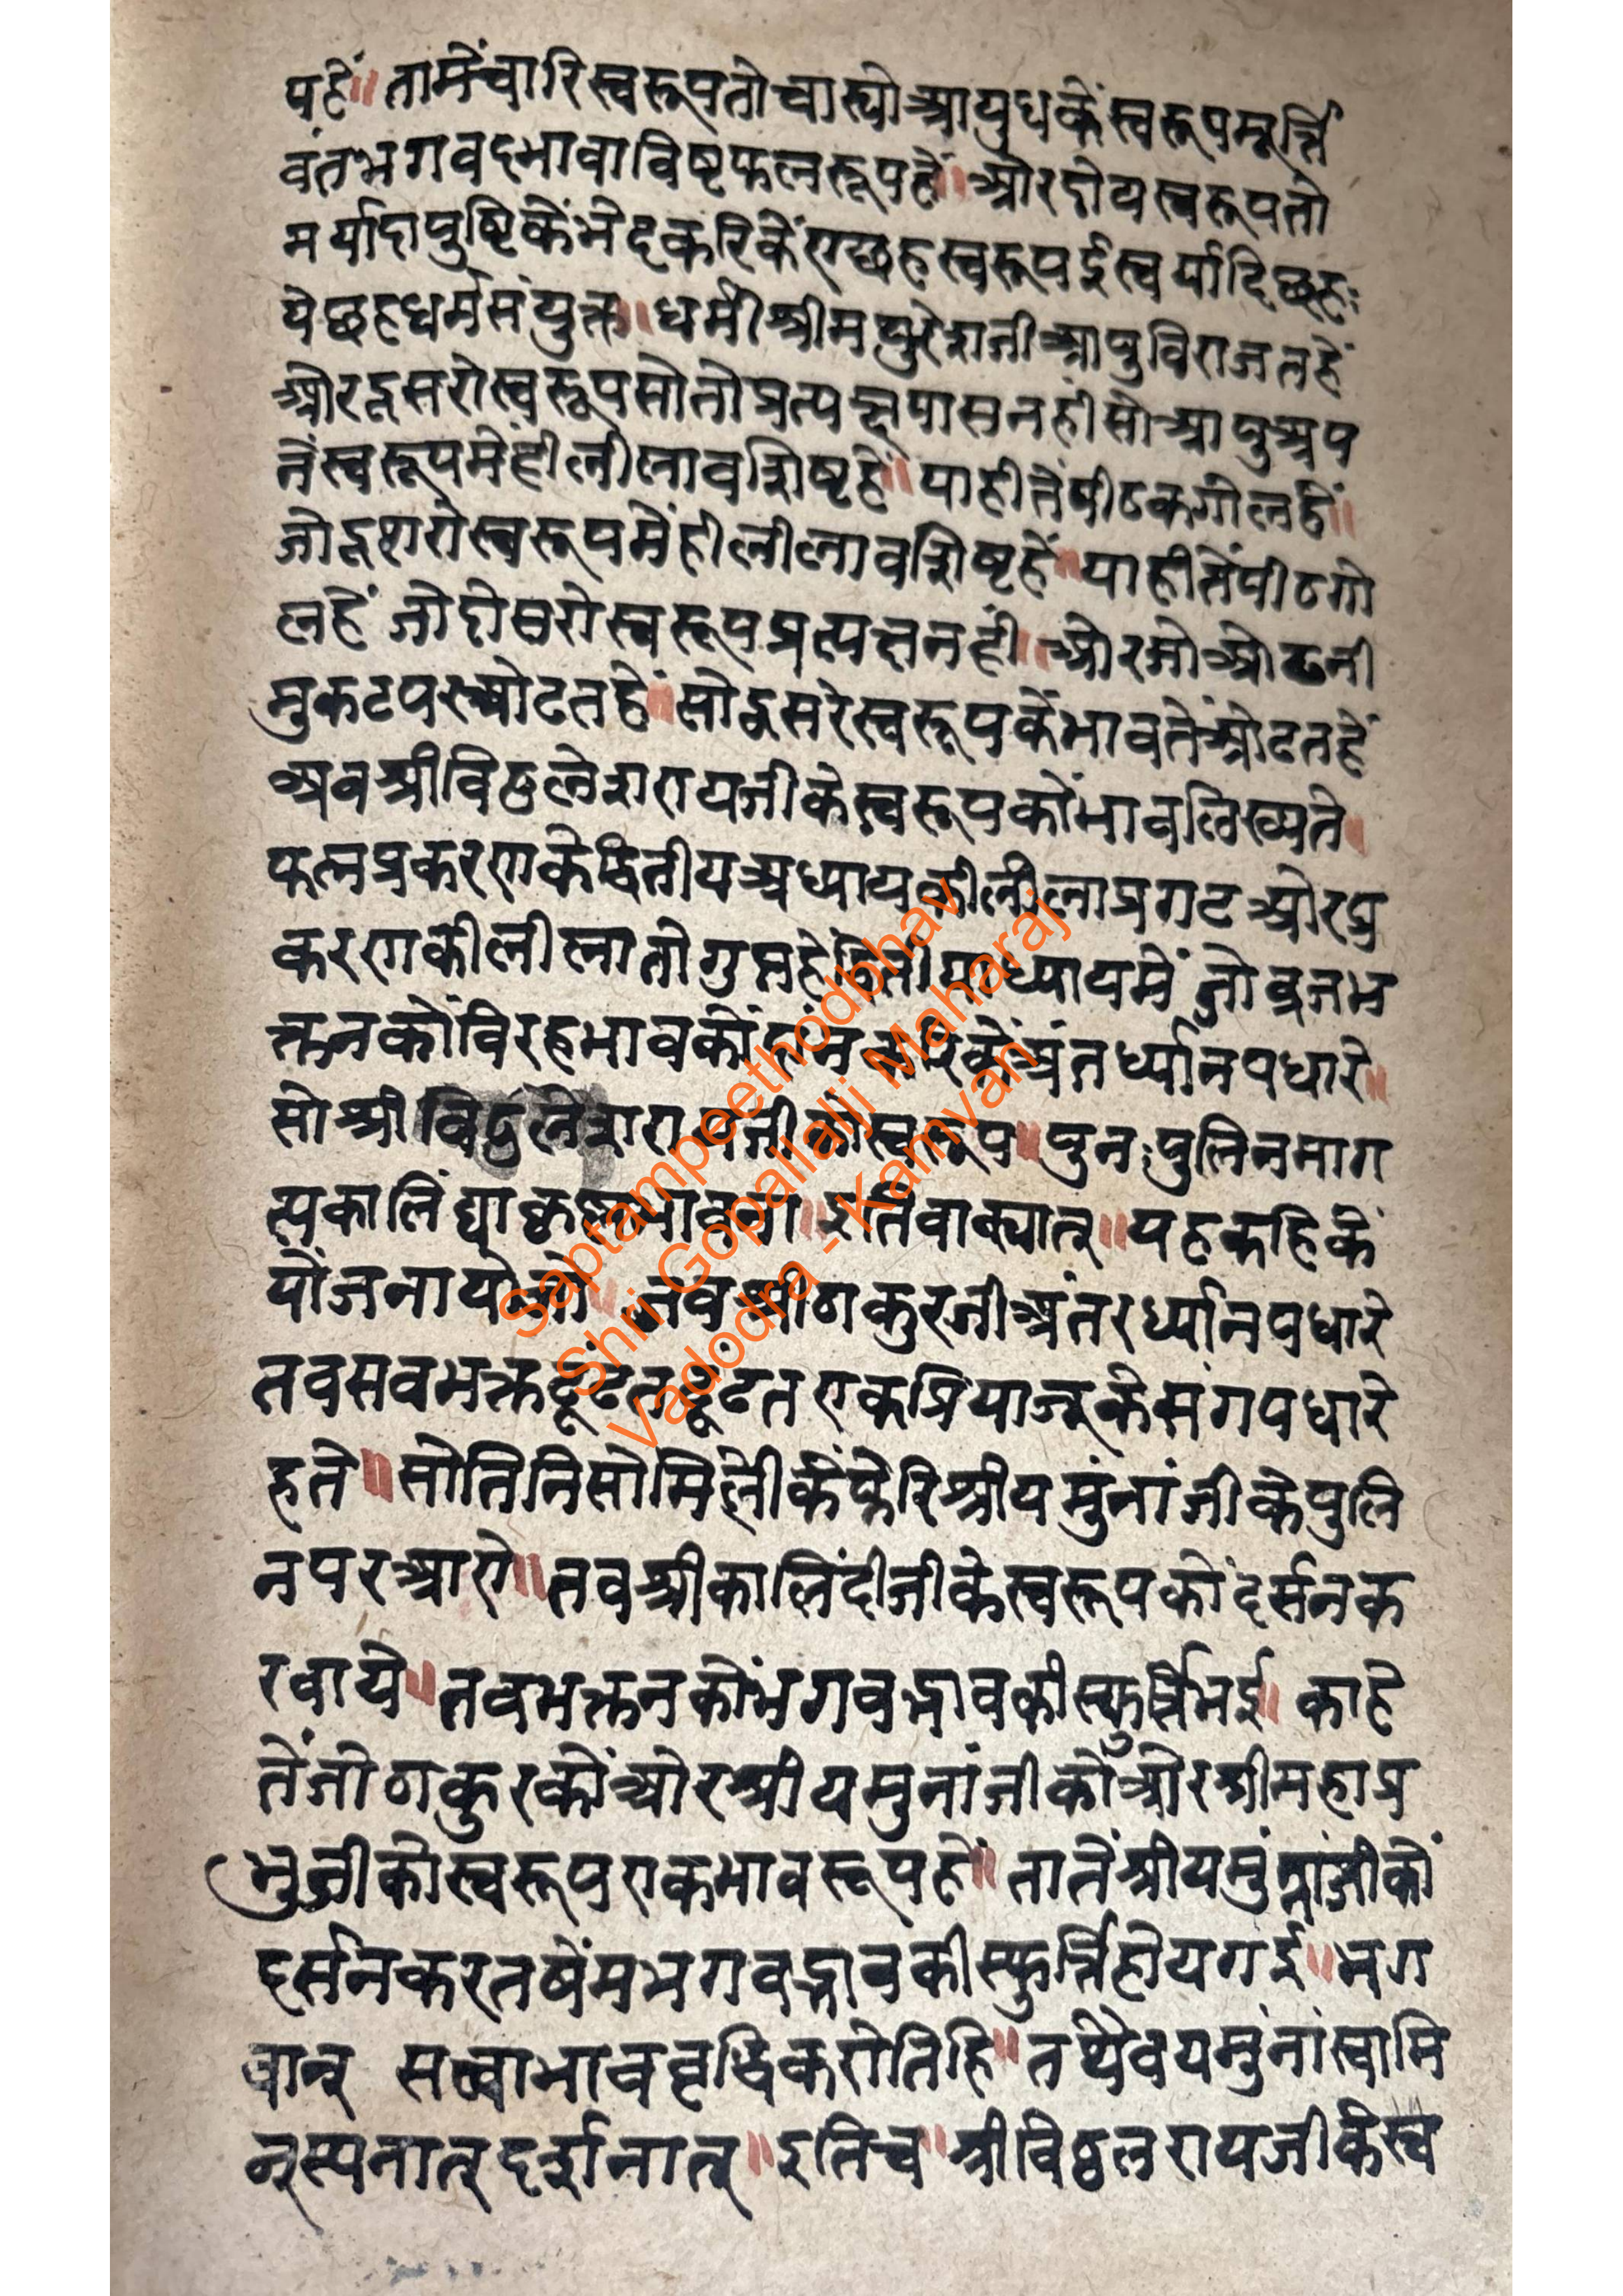 पहें॥ तामेंचारिस्वरूपतोचास्योआयुधकेंस्वरूपमूर्त्ति
वंतभगवदभावाविष्टफलरूपहें॥ ओरदोयस्वरूपतो
मर्यादापुष्टिकेंभेदकरिकेंएछहस्वरूपईस्वर्यादिछहः
येछहधर्मसंयुक्त॥ धर्मीश्रीमथुरेशजीआपुविराजतहें
ओरदूसरोस्वरूपसोतोप्रत्यक्षपासनहीसोआपुअप
नेंस्वरूपमेंहीलीलावशिष्टहें॥ याहीतेंपीठकगोलहें॥
जोदूशरोस्वरूपमेंहीलीलावशिष्टहें॥ याहीतेंपीठगो
लहें जोदोसरोस्वरूपप्रत्यक्षनहीं॥ ओरजोओढनी
मुकटपरओढतहें॥ सोदूसरेस्वरूपकेंभावतेंओढतहें
अबश्रीविठ्ठलेशरायजीकेस्वरूपकोंभावलिख्यते॥
फलप्रकरणकेद्वितीयअध्यायकीलीलाप्रगटओरप्र
करणकीलीलातोगुप्तहेद्वितीयाध्यायमें जोव्रजभ
क्तनकोंविरहभावकों दांन करिकेंअंतर्ध्यानपधारे॥
सोश्रीविठ्ठलेशरायजीकोस्वरूप॥ पुनःपुलिनमाग
त्यकालिंद्याकृष्णभावना॥ इतिवाक्यात्॥ यहकहिकें
योंजनायो जो॥ जबश्रीठाकुरजीअंतरर्ध्यानपधारे
तवसवभक्तढूंढतढूंढत एकप्रियाजूकेसंगपधारे
हते॥ सोतिनिसोमिलेीकेंफेरिश्रीयमुंनांजीकेपुलि
नपरआए॥ तवश्रीकालिंदीजीकेस्वरूपकोंदर्सनक
रवाये॥ तवभक्तनकोंभगवद्भावकीस्फुर्त्तिभई॥ काहे
तेंजोठाकुरकोंओरश्रीयमुनांजीकोंओरश्रीमहाप्र
भुजीकोस्वरूपएकभावरूपहें॥ तातेंश्रीयमुंनांजीकों
दर्सनकरतषेंमभगवद्भावकीस्फुर्त्तिहोयगई॥ भग
वान् सख्याभाववृद्धिकरोतिहि॥ तथैवयमुंनांस्वामि
न्स्पनात्दर्शनात्॥ इतिच॥ श्रीविठ्ठलरायजीकेस्व
Saptampeethodbhav
Shri Gopallalji Maharaj
Vadodra - Kamvan